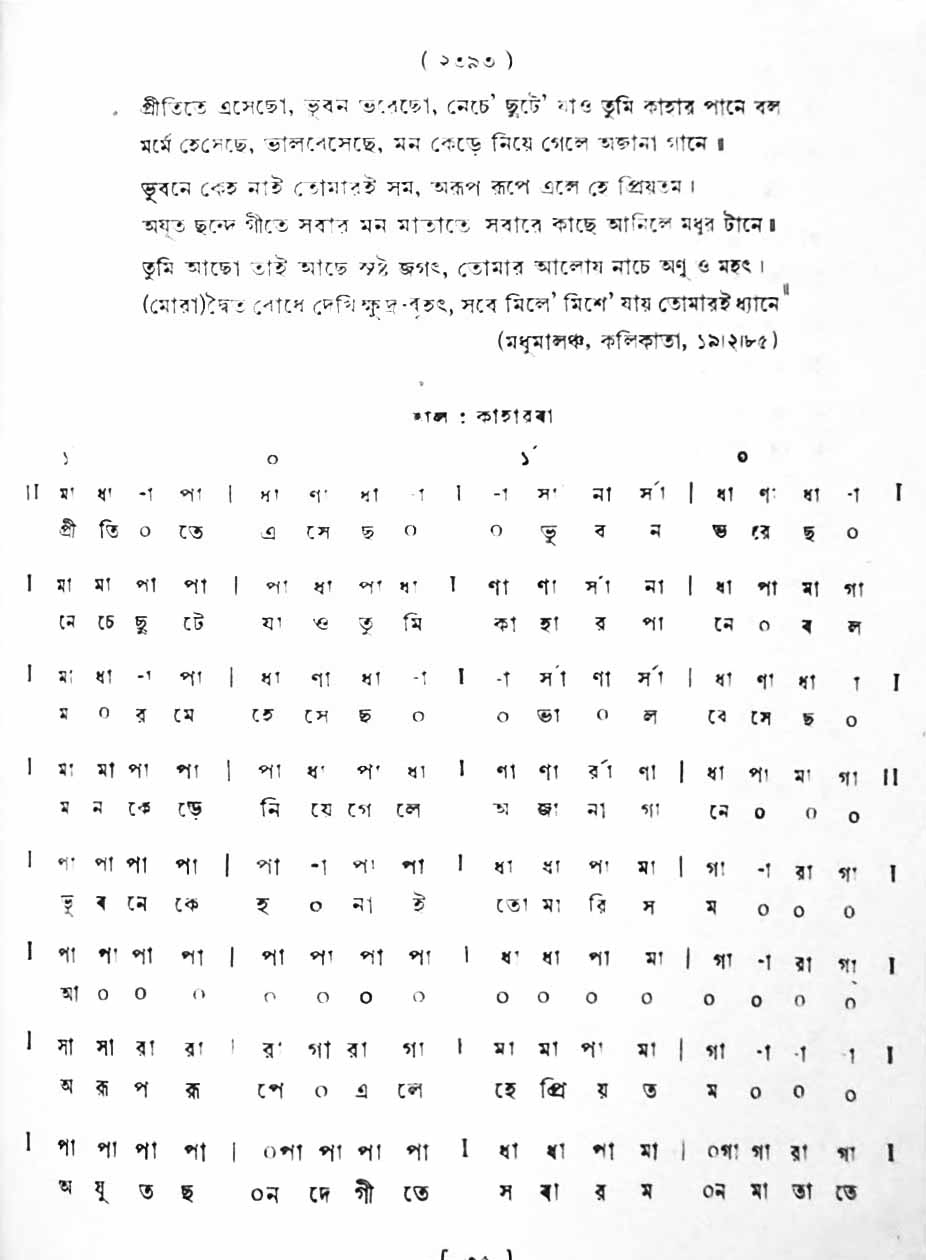 ( ২৩৯৩ )
প্রীতিতে এসেছো, ভুবন ভরেছো, নেচে' ছুটে' যাও তুমি কাহার পানে বল
মর্মে হেসেছে, ভালবেসেছে, মন কেড়ে নিয়ে গেলে অজানা গানে ॥
ভুবনে কেহ নাই তোমারই সম, অরূপ রূপে এলে হে প্রিয়তম ।
অযুত ছন্দে গীতে সবার মন মাতাতে সবারে কাছে আনিলে মধুর টানে ॥
তুমি আছো তাই আছে জগৎ, তোমার আলোয় নাচে অণু ও মহৎ ।
(মোরা)দ্বৈত বোধে দেখি ক্ষুদ্র-বৃহৎ, সবে মিলে' মিশে' যায় তোমারই ধ্যানে ॥
(মধুমালঞ্চ, কলিকাতা, ১৯।২।৮৫)
তাল : কাহারবা
১ ০ ১´ ০
II মা ধা -া পা | ধা ণা ধা -া I -া র্সা না র্সা | ধা ণা ধা -া I
প্রী তি ০ তে এ সে ছ ০ ০ ভু ব ন ভ রে ছ ০
I মা মা পা পা | পা ধা পা ধা I ণা ণা র্সা না | ধা পা মা গা
নে চে ছু টে যা ও তু মি কা হা র পা নে ০ ব ল
I মা ধা -া পা | ধা ণা ধা -া I -া র্সা ণা র্সা | ধা ণা ধা া I
ম ০ র মে হে সে ছ ০ ০ ভা ০ ল বে সে ছ ০
I মা মা পা পা | পা ধা পা ধা I ণা ণা র্রা ণা | ধা পা মা গা II
ম ন কে ড়ে নি য়ে গে লে অ জা না গা নে ০ ০ ০
I পা পা পা পা | পা -া পা পা I ধা ধা পা মা | গা -া রা গা I
ভু ব নে কে হ ০ না ই তো মা রি স ম ০ ০ ০
I পা পা পা পা | পা পা পা পা I ধা ধা পা মা | গা -া রা গা I
আ ০ ০ ০ ০ ০ ০ ০ ০ ০ ০ ০ ০ ০ ০ ০
I সা সা রা রা | রা গা রা গা I মা মা পা মা | গা -া -া -া I
অ রূ প রূ পে ০ এ লে হে প্রি য় ত ম ০ ০ ০
I পা পা পা পা | ০পা পা পা পা I ধা ধা পা মা | ০গা গা রা গা I
অ যু ত ছ ০ন দে গী তে স বা র ম ০ন মা তা তে